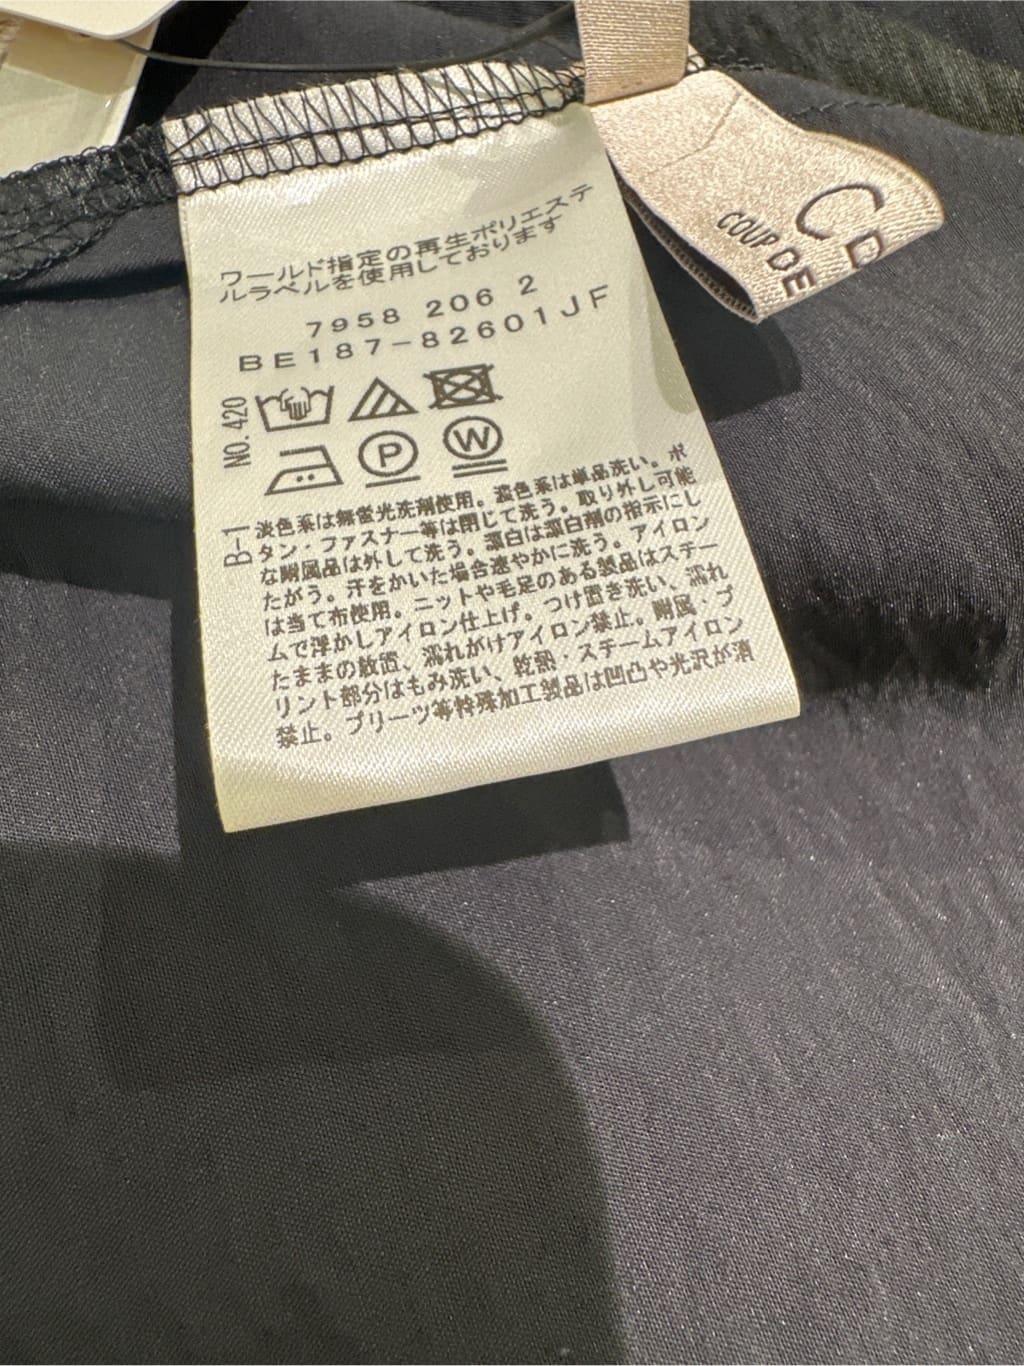 ワールド指定の再生ポリエステ
ルラベルを使用しております
7958 206 2
BE187-82601JF
NO.420
P
W
B-1
淡色系は無蛍光洗剤使用。濃色系は単品洗い。ボ
タン・ファスナー等は閉じて洗う。取り外し可能
な附属品は外して洗う。漂白は漂白剤の指示にし
たがう。汗をかいた場合速やかに洗う。アイロン
は当て布使用。ニットや毛足のある製品はスチー
ムで浮かしアイロン仕上げ。つけ置き洗い、濡れ
たままの放置、濡れがけアイロン禁止。附属・プ
リント部分はもみ洗い、乾熱・スチームアイロン
禁止。プリーツ等特殊加工製品は凹凸や光沢が消
COUP DE